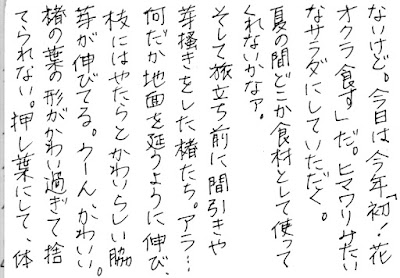 ないけど。今日は今年「初!花
オクラ食す」だ。ヒマワリみたい
なサラダにしていただく。
夏の間どこか食材として使って
くれないかなァ。
そして旅立ち前に間引きや
芽掻きをした楮たち。アラ…
何だか地面を這うように伸び、
枝にはやたらとかわいらしい脇
芽が伸びてる。うーん、かわいい。
楮の葉の形がかわい過ぎて捨
てられない。押し葉にして、体